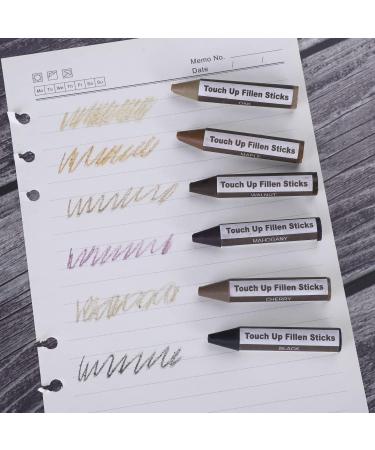 Memo No.
Mo Tu We Th Fr Sa Su
Date / /
Touch Up Fillen Sticks
OAK
Touch Up Fillen Sticks
MAPLE
Touch Up Fillen Sticks
WALNUT
Touch Up Fillen Sticks
MAHOGANY
Touch Up Fillen Sticks
CHERRY
Touch Up Fillen Sticks
BLACK